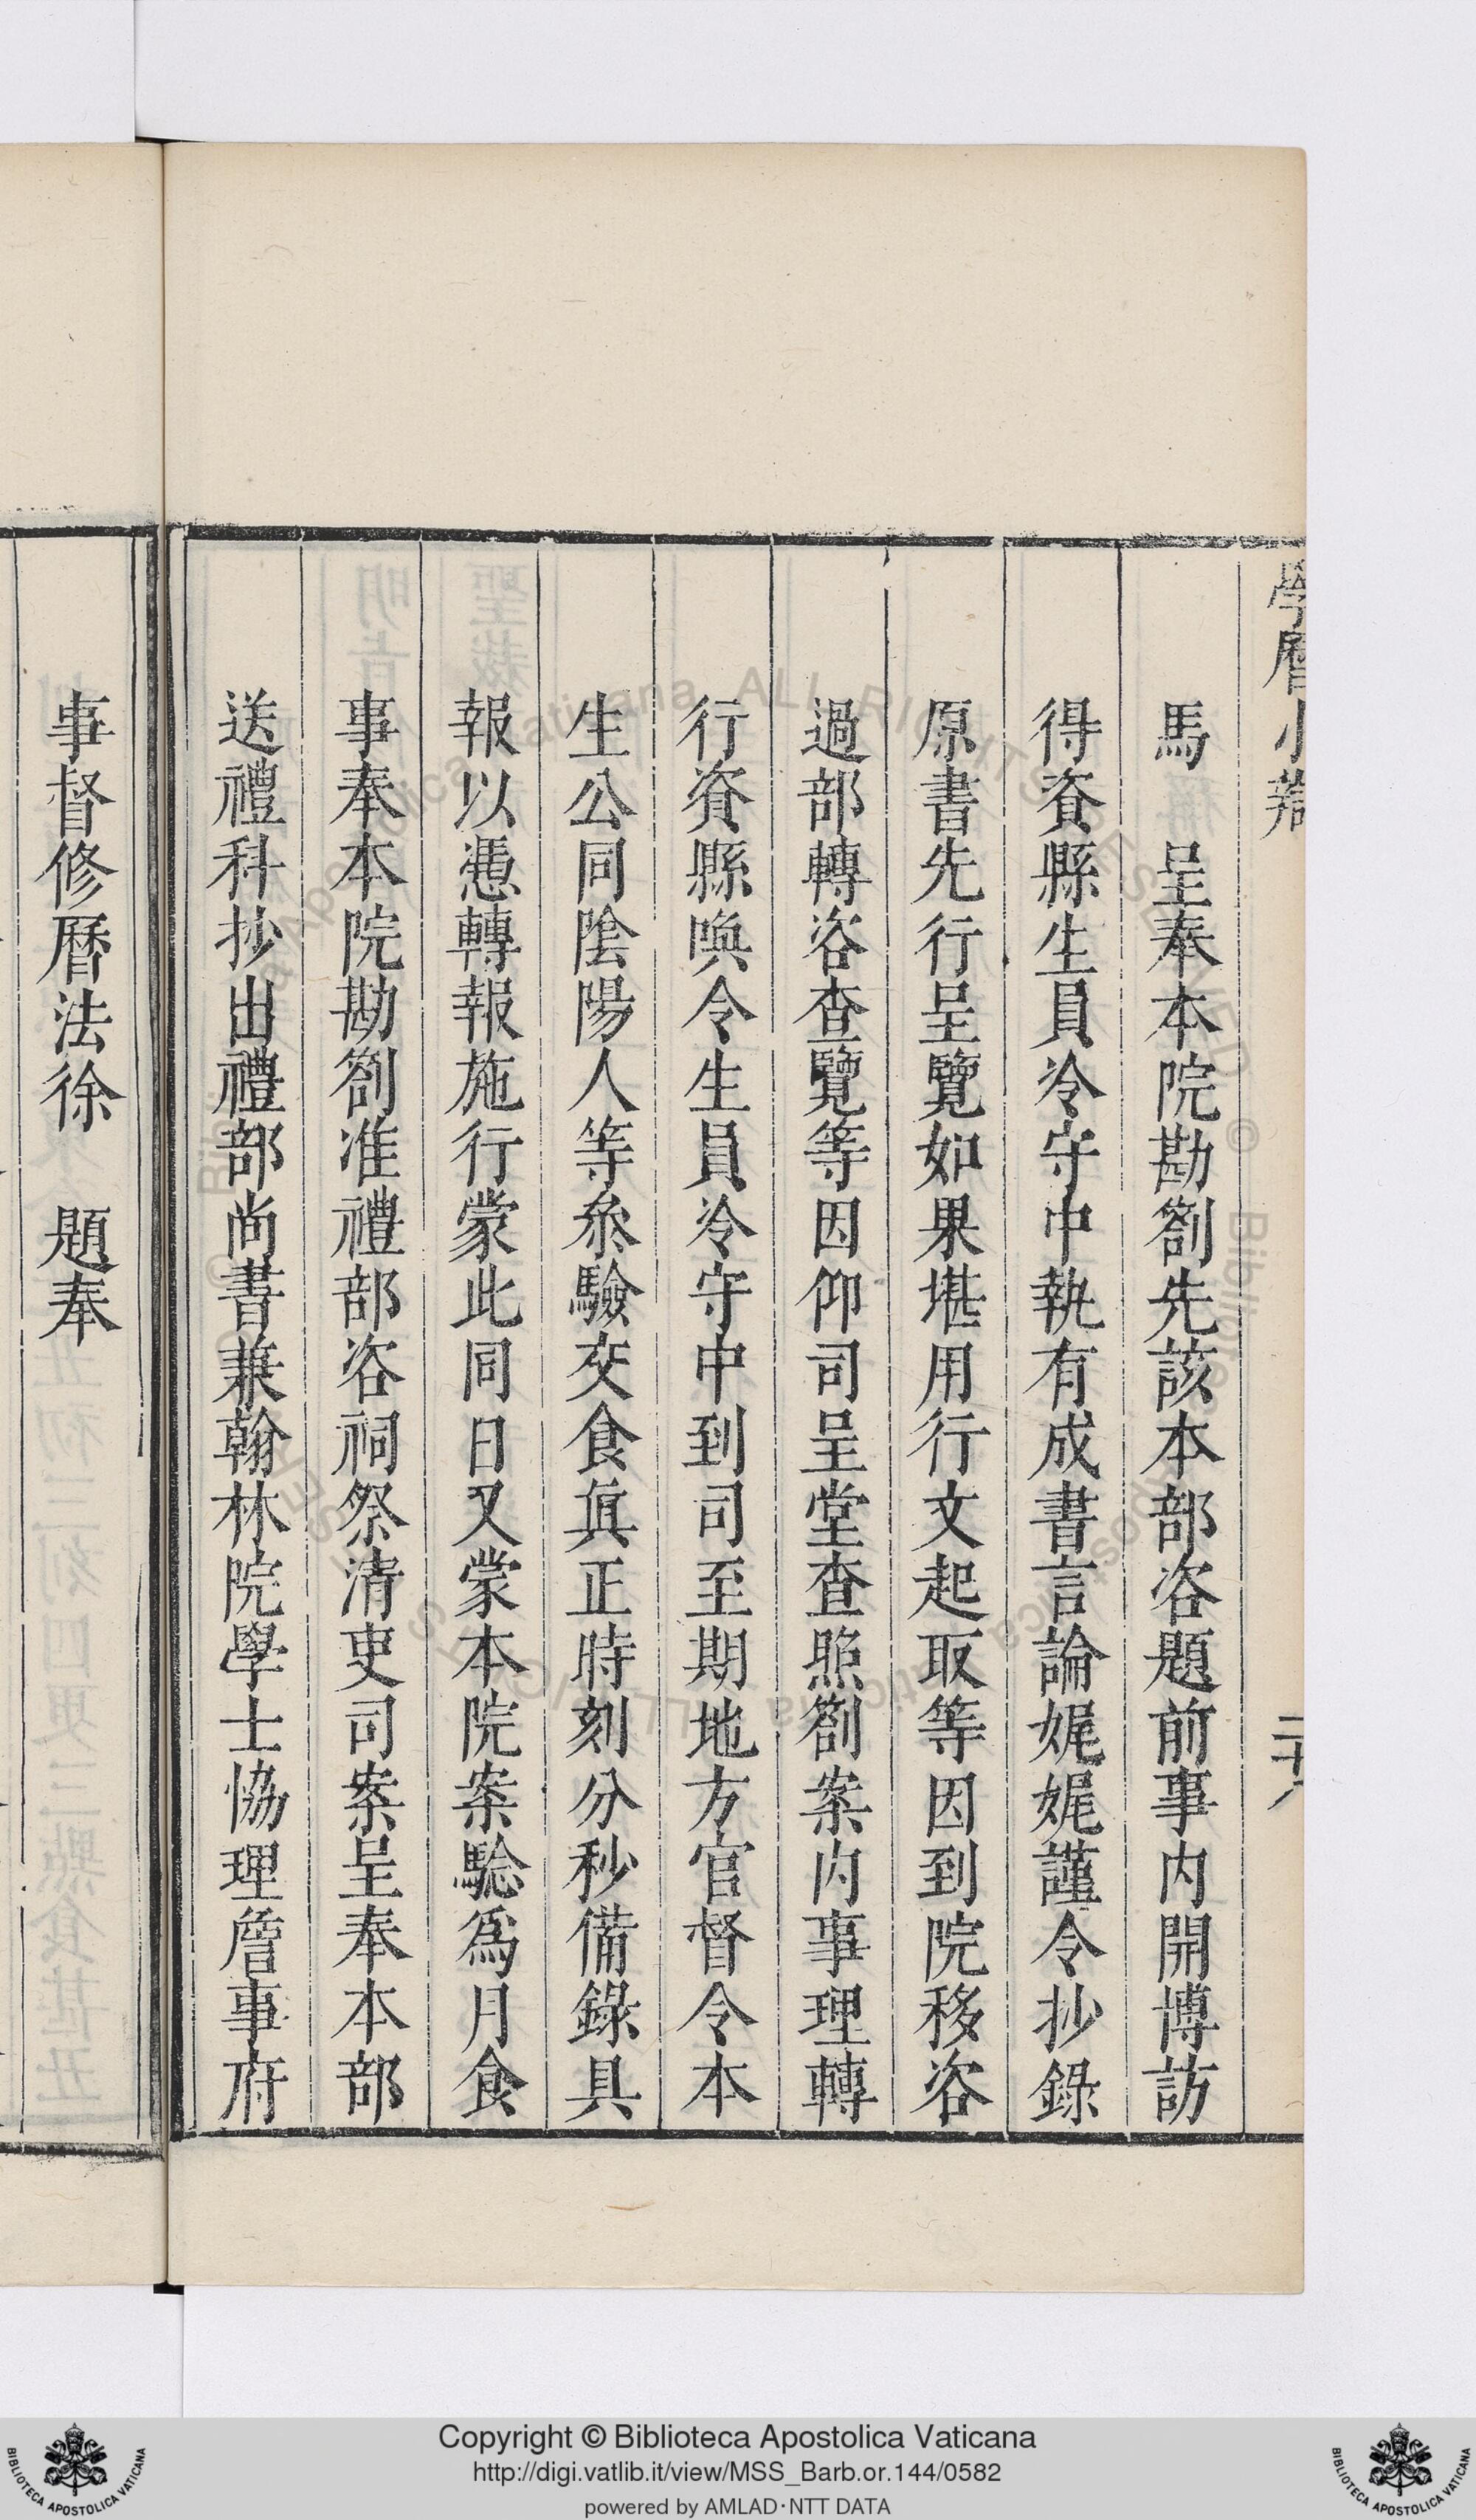 學曆小辯
二十八
馬　呈奉本院勘劄先該本部咨題前事內開博訪
得資縣生員冷守中執有成書言論娓娓謹令抄錄
原書先行呈覽如果堪用行文起取等因到院移咨
過部轉咨查覽等因仰司呈堂查照劄案內事理轉
行資縣喚令生員冷守中到司至期地方官督令本
生公同陰陽人等叅驗交食眞正時刻分秒備錄具
報以憑轉報施行蒙此同日又蒙本院案驗爲月食
事奉本院勘劄准禮部咨祠祭清吏司案呈奉本部
送禮科抄出禮部尚書兼翰林院學士協理詹事府
事督修曆法徐　題奉
Copyright © Biblioteca Apostolica Vaticana
http://digi.vatlib.it/view/MSS_Barb.or.144/0582
powered by AMLAD·NTT DATA
BIBLIOTECA APOSTOLICA VATICANA
BIBLIOTECA APOSTOLICA VATICANA